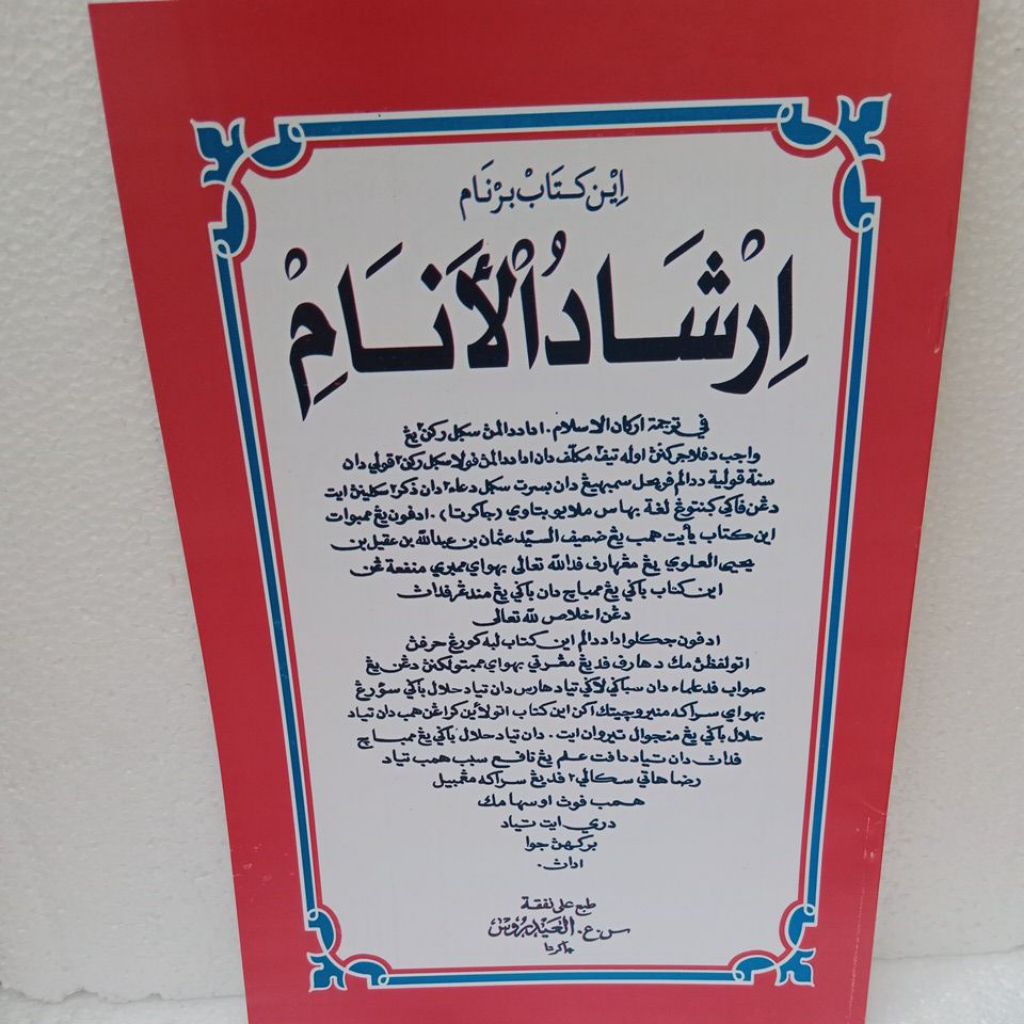 اِيْن كتَابْ برْنَام
اِرْشَادُ الْأَنَامْ
في ترجمة اركان الاسلام. ادا ددالمڽ سكل ركن٢ يڠ
واجب دفلاجركنڽ اوله تيف٢ مكلّف دان ادا ددالمڽ فولا سكل ركن٢ قولي دان
سنة قولية ددالم فربحل سمبهيڠ دان بسرت سكل دعاء٢ دان ذكر٢ سكلينڽ ايت
دڠن فاكي كنتوڠ لغة بهاس ملايو بتاوي (جاكرتا). ادفون يڠ ممبوات
اين كتاب يأيت همب يڠ ضعيف السيّد عثمان بن عبدالله بن عقيل بن
يحيى العلوي يڠ مڠهارف فدالله تعالى بهواي ممبري منفعة دڠن
اين كتاب باكي يڠ ممباچ دان باكي يڠ مندڠر فداڽ
دڠن اخلاص لله تعالى
ادفون جكلو ادا ددالم اين كتاب لبه كورڠ حرفڽ
اتو لفظڽ مك دهارف فد يڠ مڠرتي بهواي ممبتولكنڽ دڠن يڠ
صواب فد علماء دان سباكي لاكي تياد هارس دان تياد حلال باكي سؤرڠ
بهواي سراكه منيرو چيتك اكن اين كتاب اتو لاين كراڠن همب دان تياد
حلال باكي يڠ منجوال تيروان ايت. دان تياد حلال باكي يڠ ممباچ
فداڽ دان تياد دافت علم يڠ نافع سبب همب تياد
رضا هاتي سكالي٢ فد يڠ سراكه مڠمبيل
همب فوڽ اوسها مك
دري ايت تياد
بركهڽ جوا
اداڽ.
طبع على نفقة
س.ع. العَيْدَرُوسْ
جاكرتا